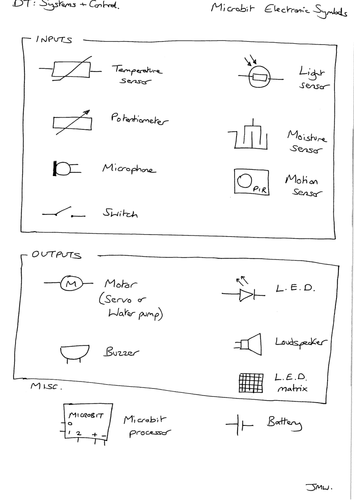 DT: Systems + Control.
Microbit Electronic Symbols
INPUTS
Temperature
sensor
Light
sensor
Potentiometer
Moisture
Sensor
Microphone
PIR
Motion
Sensor
Switch
OUTPUTS
M
Motor
(Servo or
Water pump)
L.E.D.
Buzzer
Loudspeaker
L.E.D.
matrix
MISC.
MICROBIT
0
1 2 + -
Microbit
processor
Battery
JMW.